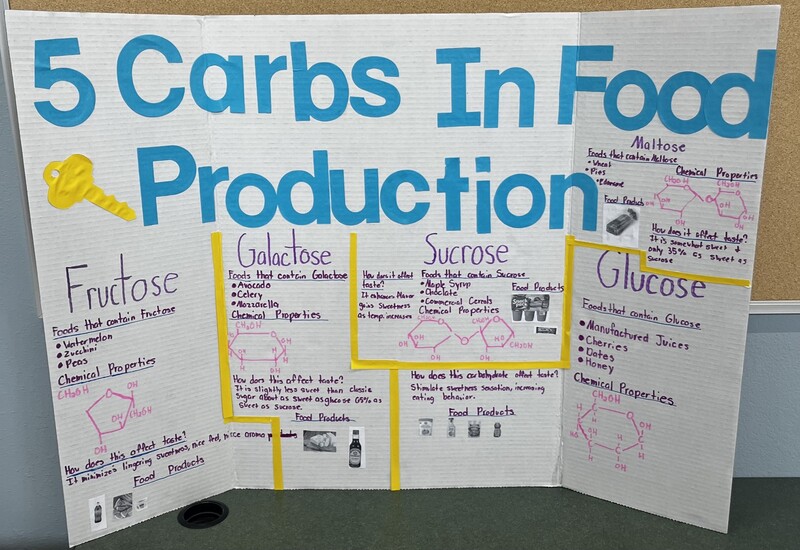 5 Carbs In Food
Production
Fructose
Foods that contain Fructose
• Watermelon
• Zucchini
• Peas
Chemical Properties
CH₂OH
OH
CH₂OH
OH
How does this affect taste?
It minimizes lingering sweetness, nice feel, nice aroma
Food Products
Galactose
Foods that contain Galactose
• Avocado
• Celery
• Mozzarella
Chemical Properties
CH₂OH
OH
OH
How does this affect taste?
It is slightly less sweet than classic
sugar about as sweet as glucose 65% as
sweet as sucrose.
Food Products
Sucrose
How does it affect
taste?
It enhances flavor
gains sweetness
as temp. increases
Foods that contain Sucrose
• Maple Syrup
• Chocolate
• Commercial Cereals
Chemical Properties
O
CH₂OH
OH
OH
Food Products
How does this carbohydrate affect taste?
Stimulate sweetness sensation, increasing
eating behavior.
Food Products
Maltose
Foods that contain Maltose
• Wheat
• Pies
• Edamame
Chemical Properties
CH₂OH
CH₂OH
OH
OH
Food Products
How does it affect taste?
It is somewhat sweet +
only 35% as sweet as
sucrose
Glucose
Foods that contain Glucose
• Manufactured Juices
• Cherries
• Dates
• Honey
Chemical Properties
CH₂OH
H
OH
H
OH